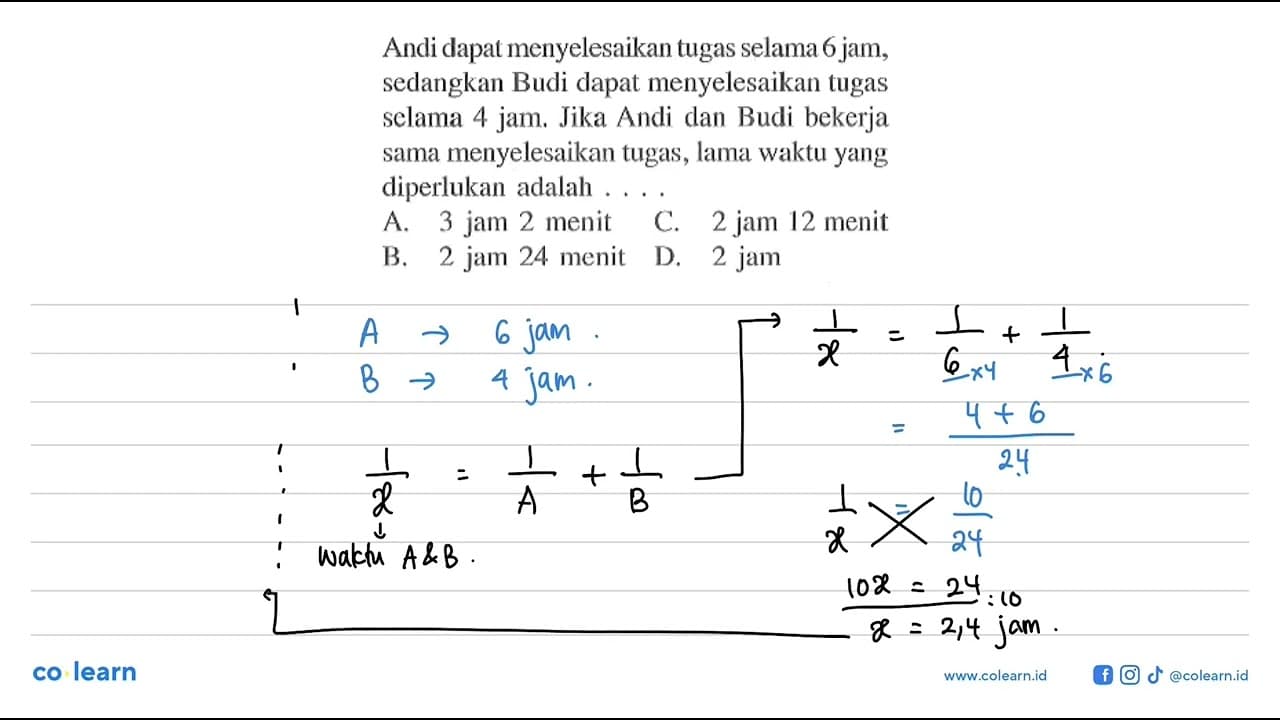 Andi dapat menyelesaikan tugas selama 6 jam,
sedangkan Budi dapat menyelesaikan tugas
selama 4 jam. Jika Andi dan Budi bekerja
sama menyelesaikan tugas, lama waktu yang
diperlukan adalah . . . .
A. 3 jam 2 menit C. 2 jam 12 menit
B. 2 jam 24 menit D. 2 jam
A → 6 jam .
B → 4 jam .
1/x = 1/A + 1/B
↓
waktu A & B .
→ 1/x = 1/6 ×4 + 1/4 ×6
= 4 + 6 / 24
1/x = 10/24
10x = 24 :10
x = 2,4 jam .
co learn
www.colearn.id
@colearn.id